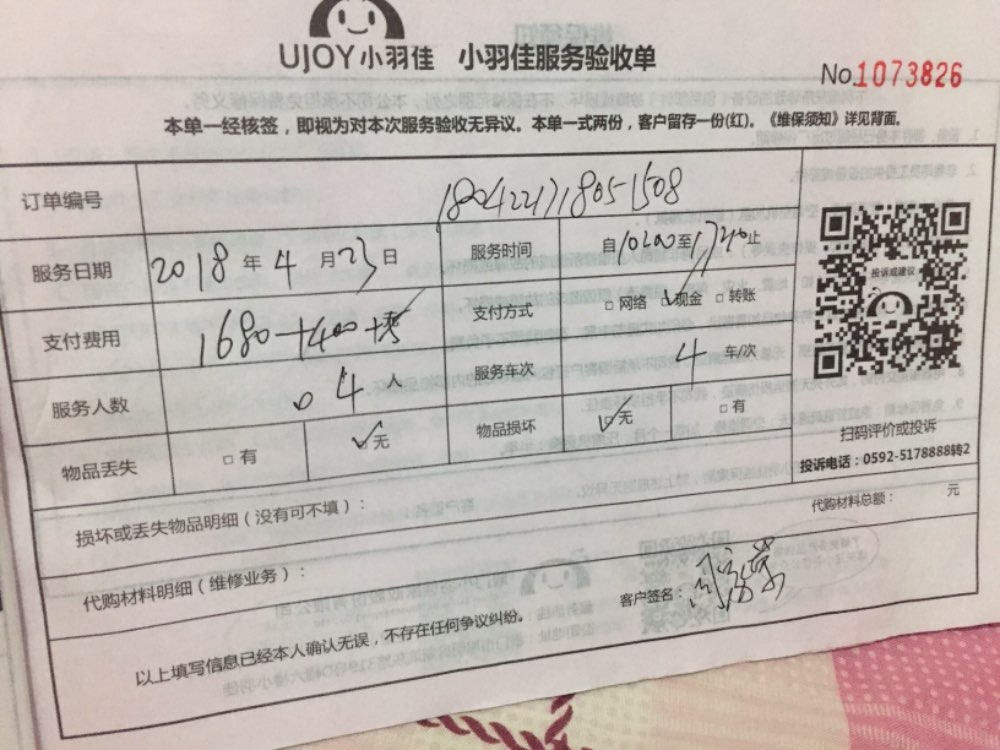 UJOY小羽佳 小羽佳服务验收单
No.1073826
本单一经核签，即视为对本次服务验收无异议。本单一式两份，客户留存一份(红)。《维保须知》详见背面。
订单编号 180422171805-1508
服务日期 2018 年 4 月 23 日 服务时间 自 10:00 至 17:20 止
支付费用 1680+400+ 支付方式 □网络 ☑现金 □转账
服务人数 4 人 服务车次 4 车/次
物品丢失 □有 ☑无 物品损坏 ☑无 □有
投诉或建议
扫码评价或投诉
投诉电话：0592-5178888转2
损坏或丢失物品明细(没有可不填)：
代购材料总额： 元
代购材料明细(维修业务)：
客户签名：
以上填写信息已经本人确认无误，不存在任何争议纠纷。